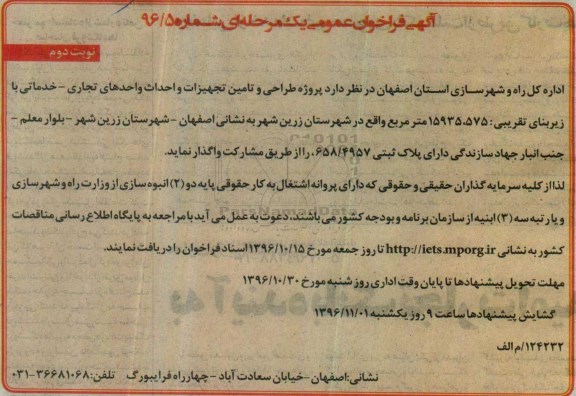 آگهی فراخوان عمومی یک مرحله‌ای شماره ۹۶/۵
نوبت دوم
اداره کل راه و شهرسازی استان اصفهان در نظر دارد پروژه طراحی و تامین تجهیزات و احداث واحدهای تجاری - خدماتی با
زیربنای تقریبی: ۱۵۹۳۵،۵۷۵ متر مربع واقع در شهرستان زرین شهر به نشانی اصفهان - شهرستان زرین شهر - بلوار معلم -
جنب انبار جهاد سازندگی دارای پلاک ثبتی ۶۵۸/۴۹۵۷، را از طریق مشارکت واگذار نماید.
لذا از کلیه سرمایه گذاران حقیقی و حقوقی که دارای پروانه اشتغال به کار حقوقی پایه دو (۲) انبوه سازی از وزارت راه و شهرسازی
و یا رتبه سه (۳) ابنیه از سازمان برنامه و بودجه کشور می باشند، دعوت به عمل می آید با مراجعه به پایگاه اطلاع رسانی مناقصات
کشور به نشانی http://iets.mporg.ir تا روز جمعه مورخ ۱۳۹۶/۱۰/۱۵ اسناد فراخوان را دریافت نمایند.
مهلت تحویل پیشنهادها تا پایان وقت اداری روز شنبه مورخ ۱۳۹۶/۱۰/۳۰
گشایش پیشنهادها ساعت ۹ روز یکشنبه ۱۳۹۶/۱۱/۰۱
۱۲۴۲۳۲/م الف
نشانی: اصفهان - خیابان سعادت آباد - چهارراه فرایبورگ تلفن: ۳۶۶۸۱۰۶۸-۰۳۱